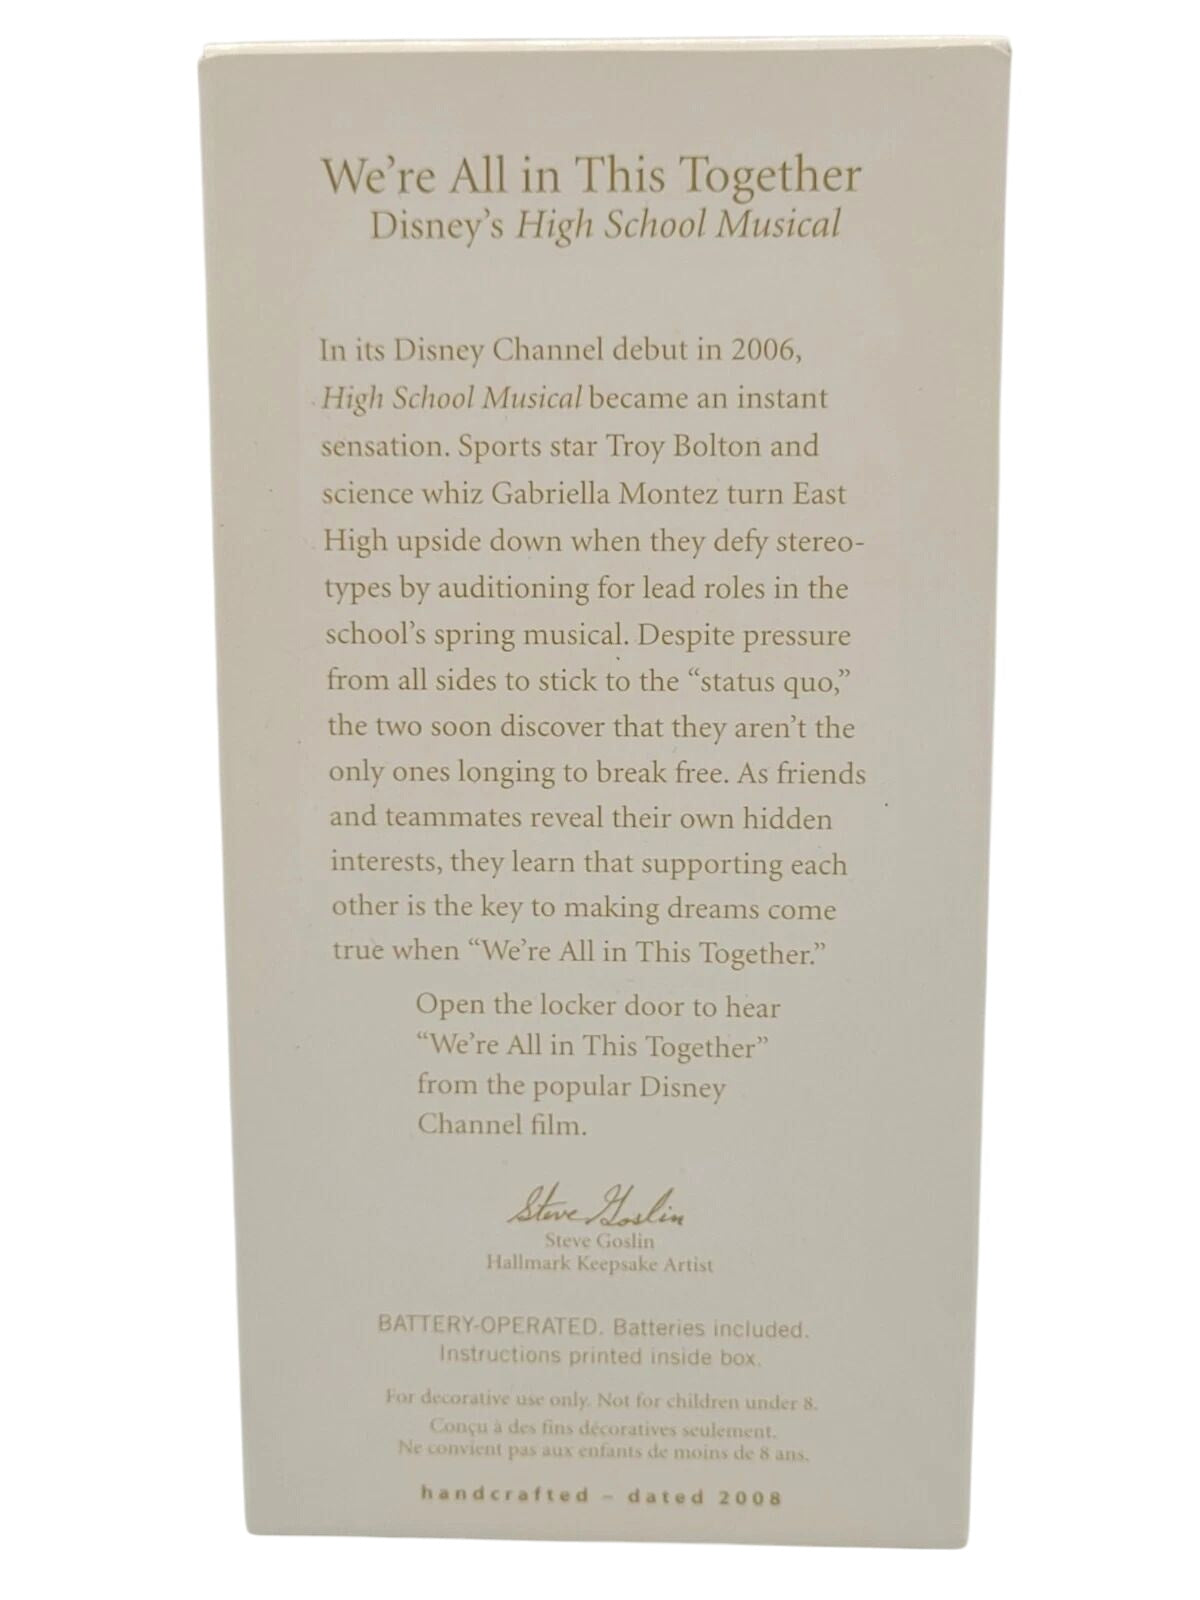 We're All in This Together
Disney's High School Musical
In its Disney Channel debut in 2006,
High School Musical became an instant
sensation. Sports star Troy Bolton and
science whiz Gabriella Montez turn East
High upside down when they defy stereo-
types by auditioning for lead roles in the
school's spring musical. Despite pressure
from all sides to stick to the “status quo,”
the two soon discover that they aren't the
only ones longing to break free. As friends
and teammates reveal their own hidden
interests, they learn that supporting each
other is the key to making dreams come
true when “We're All in This Together.”
Open the locker door to hear
“We're All in This Together”
from the popular Disney
Channel film.
Steve Goslin
Steve Goslin
Hallmark Keepsake Artist
BATTERY-OPERATED. Batteries included.
Instructions printed inside box.
For decorative use only. Not for children under 8.
Conçu à des fins décoratives seulement.
Ne convient pas aux enfants de moins de 8 ans.
handcrafted – dated 2008